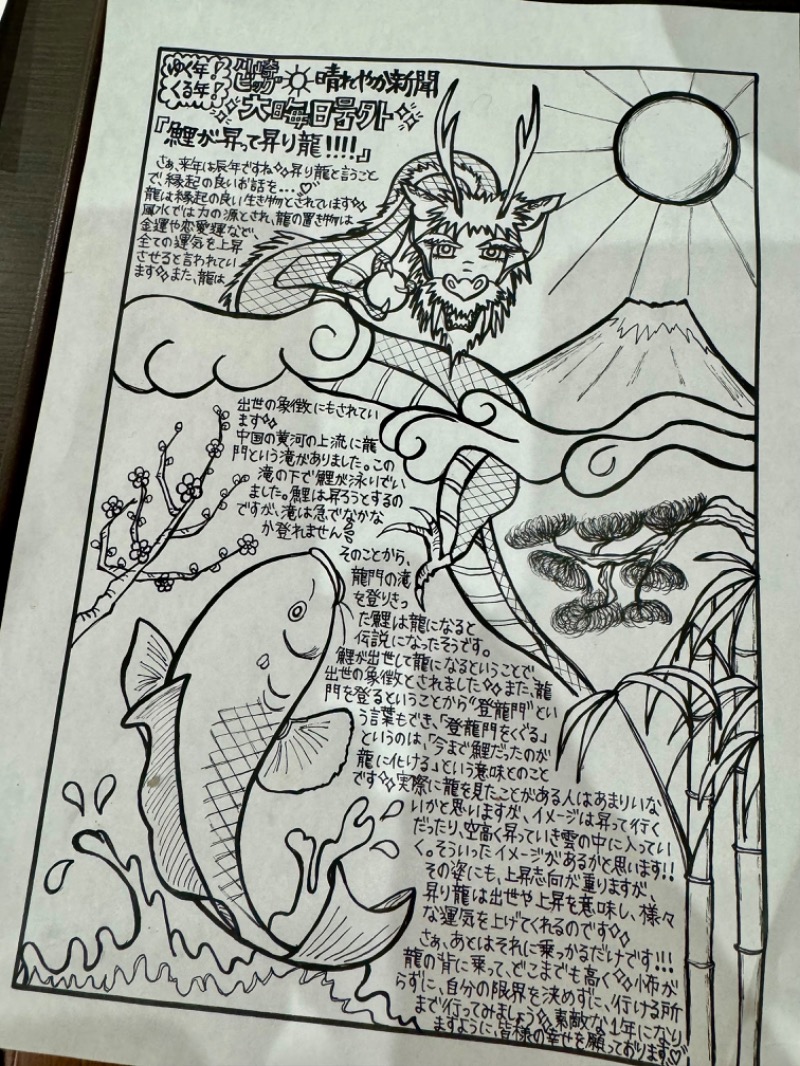 ゆく年!?
くる年!?
川崎
ビッグ
晴れやか新聞
大晦日号外
『鯉が昇って昇り龍!!!!』
さぁ、来年は辰年ですね 昇り龍と言うこと
で、縁起の良いお話を…♡
龍は縁起の良い生き物とされています
風水では力の源とされ、龍の置き物は
金運や恋愛運など、
全ての運気を上昇
させると言われてい
ます また、龍は
出世の象徴にもされてい
ます
中国の黄河の上流に龍
門という滝がありました。この
滝の下で鯉が泳いでい
ました。鯉は昇ろうとするの
ですが、滝は急でなかな
か登れません
そのことから、
龍門の滝
を登りきっ
た鯉は龍になると
伝説になったそうです。
鯉が出世して龍になるということで
出世の象徴とされました また、龍
門を登るということから“登龍門”とい
う言葉もでき、「登龍門をくぐる」
というのは、「今まで鯉だったのが
龍に化ける」という意味とのこと
です 実際に龍を見たことがある人はあまりいな
いかと思いますが、イメージは昇って行く
だったり、空高く昇っていき雲の中に入ってい
く。そういったイメージがあるかと思います!!
その姿にも、上昇志向が重りますが、
昇り龍は出世や上昇を意味し、様々
な運気を上げてくれるのです
さぁ、あとはそれに乗っかるだけです!!!
龍の背に乗って、どこまでも高く 小布が
らずに、自分の限界を決めずに、行ける所
まで行ってみましょう 素敵な1年になり
ますように、皆様の幸せを願っております♡